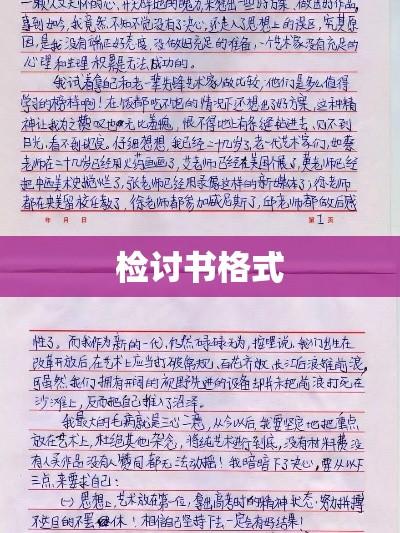 事到如今，我竟然不知不觉没有了决心，还走入了思想上的误区，究其原
因，是我没有端正好态度，没做好充足的准备，一个艺术家没有充足的
心理和生理积累是无法成功的。
我试着拿自己和老一辈先锋艺术家做比较，他们是多么值得
学习的榜样啊！在饭都吃不饱的情况下还想出了好方案，这种精
神让我为之赞叹也无比羞愧，恨不得地上有条缝钻进去，见不到
日光，看不到。仔细想想，我已经二十几岁了，老一代艺术家们，如蔡
老师在二十几岁已经用火药画画了，艾老师已经在美国了，黄老师已经
把中西美术史搅烂了，张老师已经用录像这样的新媒体了；徐老师
都在央美留校任教了，徐老师都参加威尼斯了，邱老师都做后感
年 月 日 第1页
检讨书格式
性了。而我作为新的一代，仍然碌碌无为，按理说，我们出生在
改革开放后，在艺术上应当打破常规、百花齐放，长江后浪推前浪，
但虽然我们拥有开阔的视野先进的设备却并未把前浪打死在
沙滩上，反而把自己推入了沼泽。
我最大的毛病就是三心二意，从今以后，我要坚定地把重点
放在艺术上，杜绝其他杂念，将纯艺术进行到底，没有材料费没
有人买作品没有人赞同都无法动摇！我暗暗下了决心，要从以下
三点来要求自己：
(一) 思想上，艺术放在第一位，拿出高考时的精神状态，努力拼搏
不达目的不罢休！相信自己坚持下去一定会有好结果！